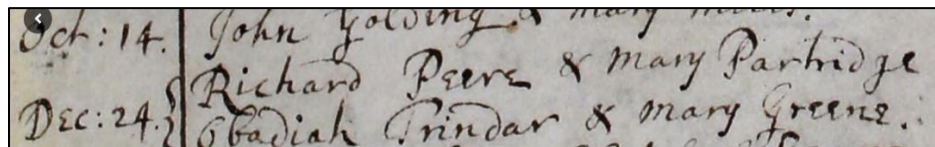 Oct: 14. John Golding & Mary Mills.
Richard Peere & Mary Partridge
Dec: 24. Obadiah Trindar & Mary Greene.